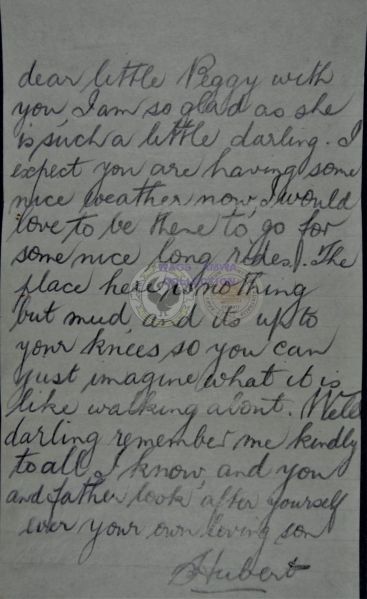 dear little Peggy with
you, I am so glad as she
is such a little darling. I
expect you are having some
nice weather now, I would
love to be there to go for
some nice long rides. The
place here is nothing
but mud, and its up to
your knees so you can
just imagine what it is
like walking about. Well
darling remember me kindly
to all I know, and you
and father look after yourself
ever your own loving son
Hubert
WAGS AMWA